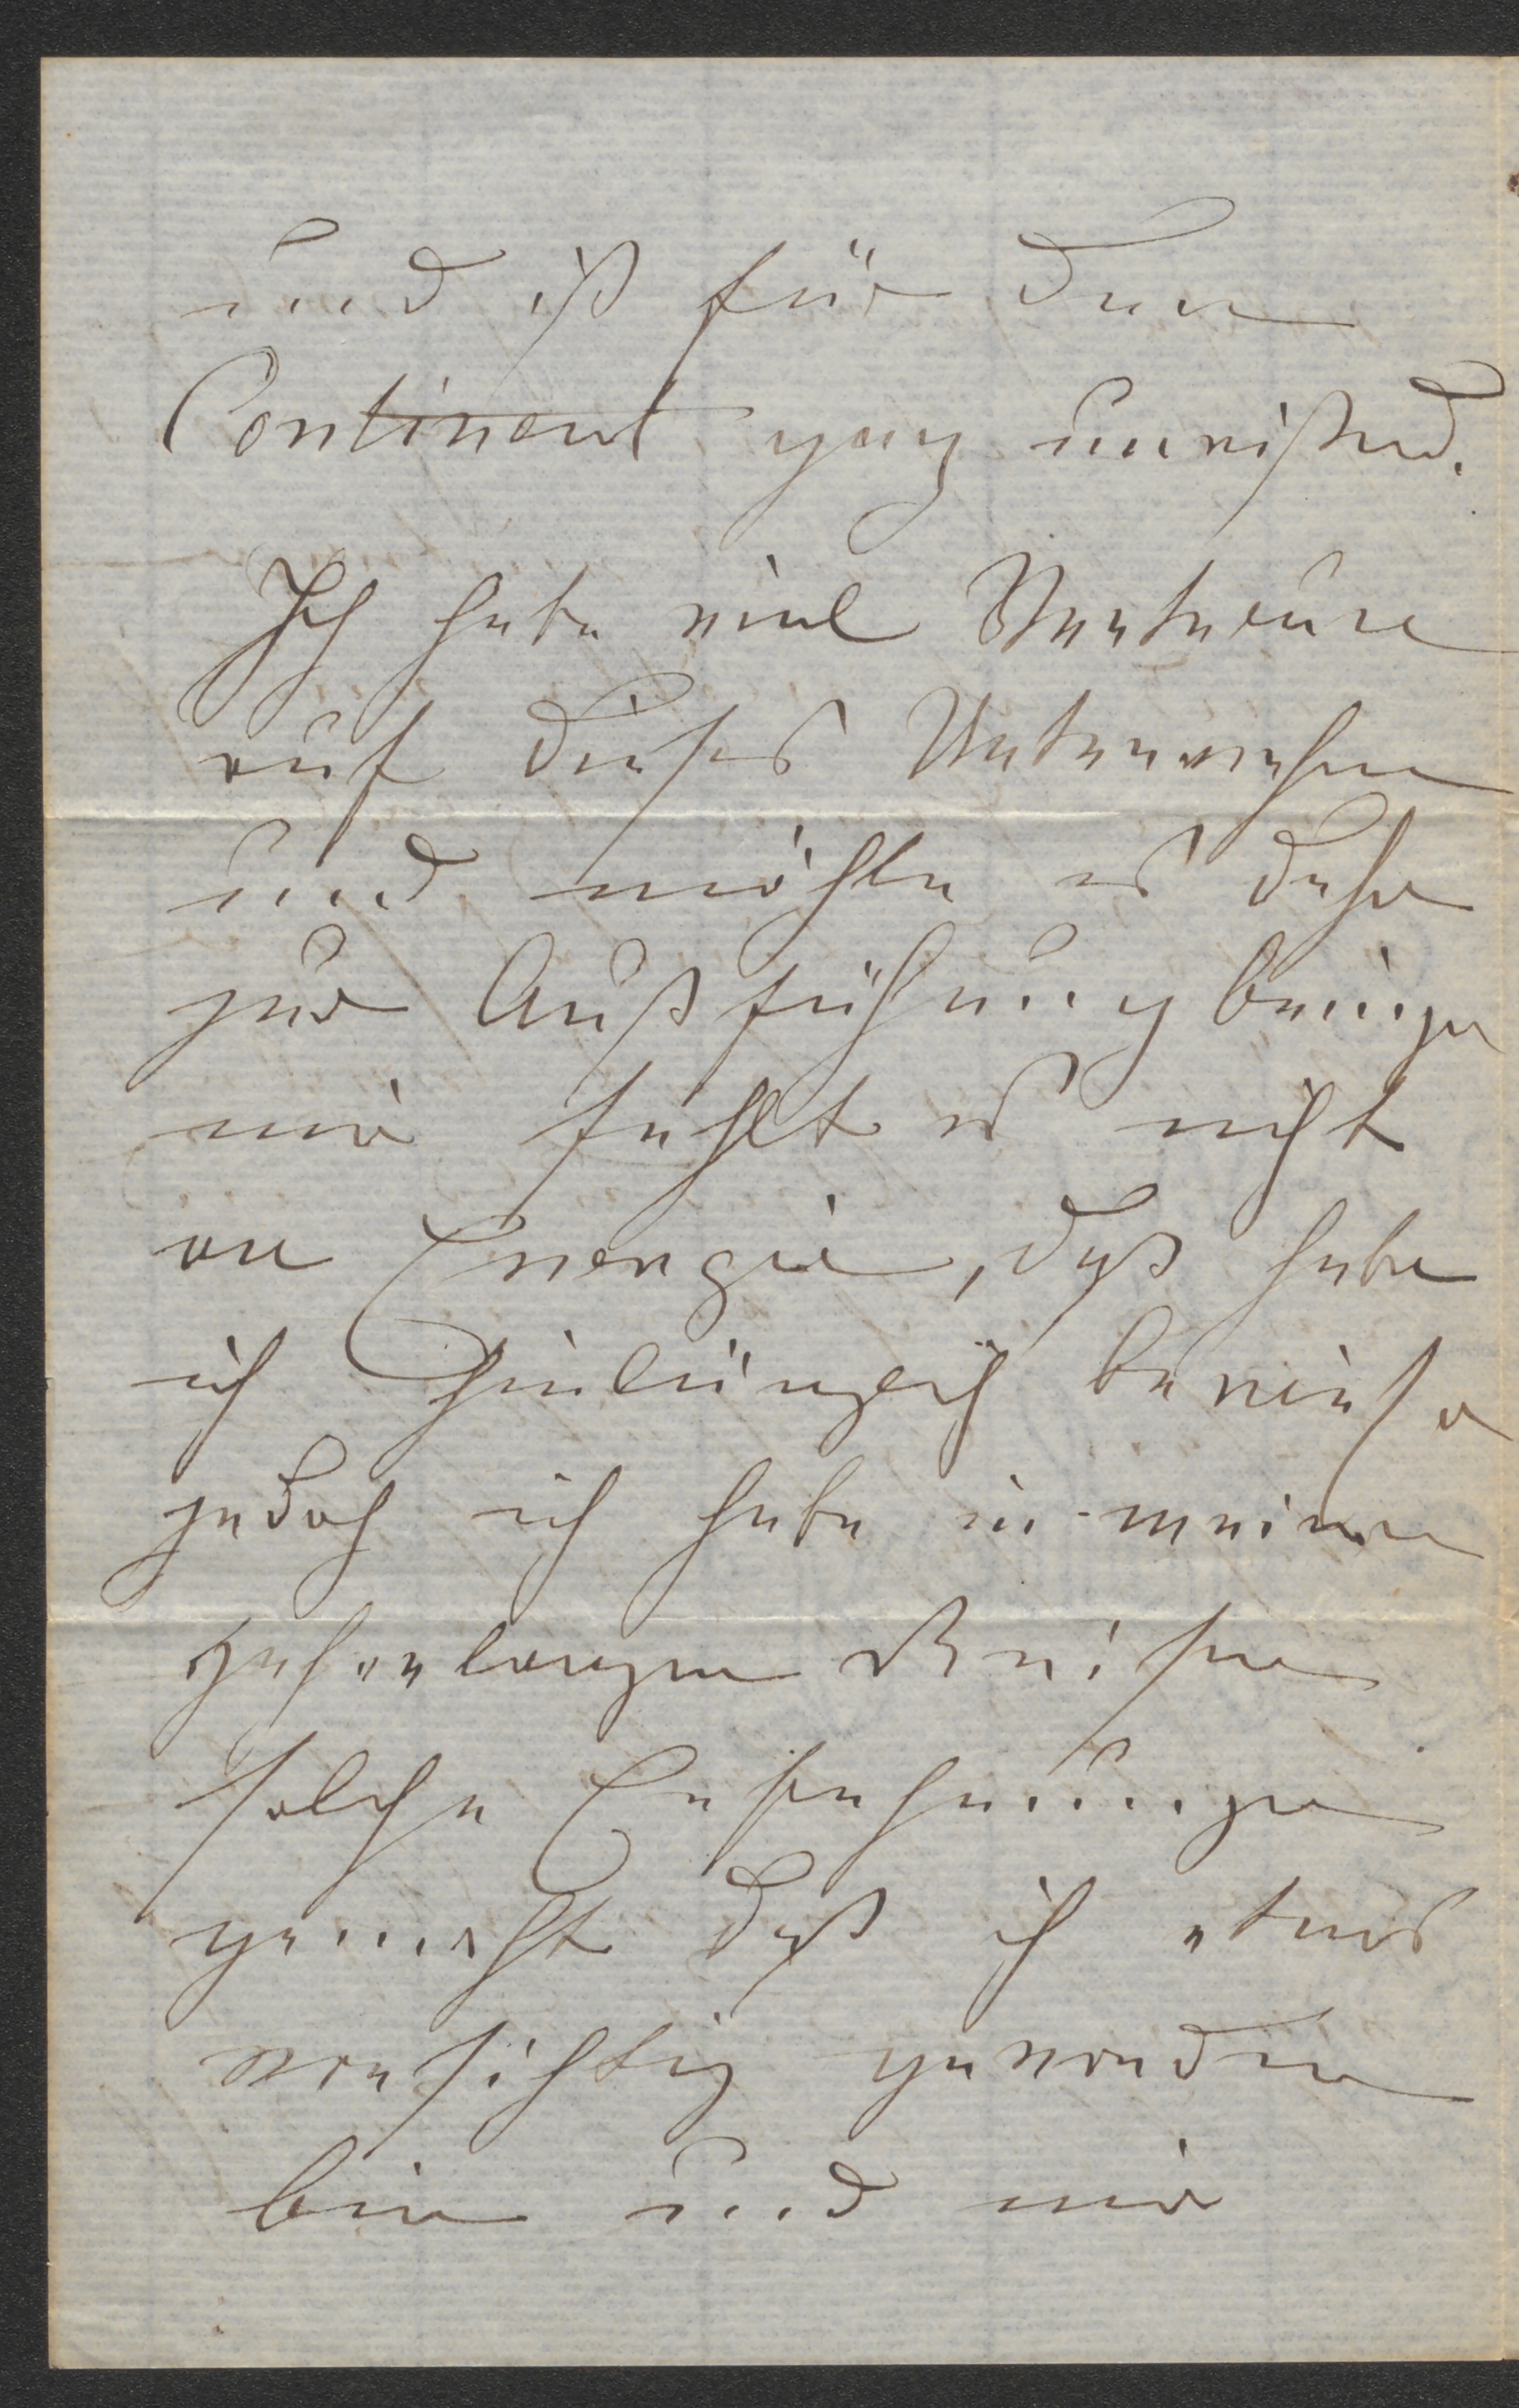 und ist für den
Continent ganz
Ich habe viel Vertrauen
auf dieses Unternehmen
und möchte es daher
zur Ausführung bringen
mir fehlt es nicht
an Energie, dass habe
ich hinlänglich bewiesen
jedoch ich habe in meinen
jahrelangen Reisen
solche Erfahrungen
gemacht daß ich etwas
vorsichtig geworden
bin und mir